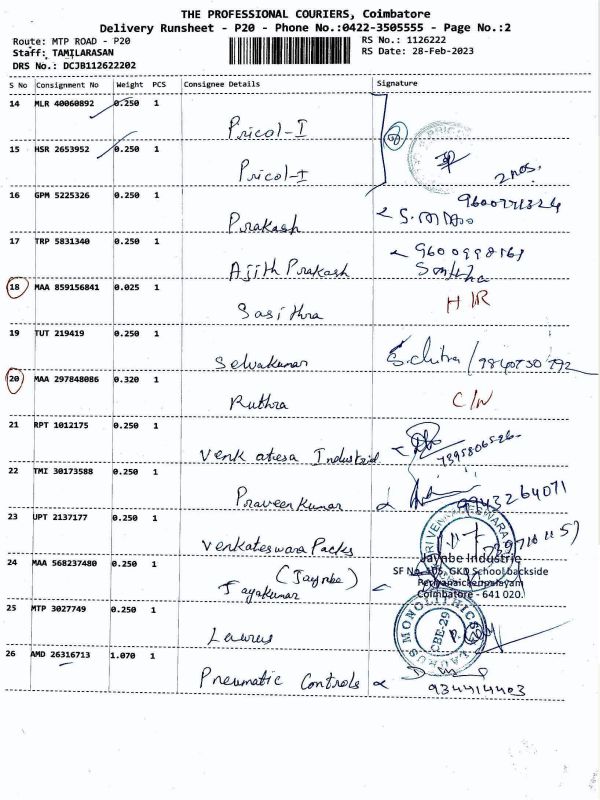 THE PROFESSIONAL COURIERS, Coimbatore
Delivery Runsheet - P20 - Phone No.:0422-3505555 - Page No.:2
Route: MTP ROAD - P20
RS No.: 1126222
Staff: TAMILARASAN
RS Date: 28-Feb-2023
DRS No.: DCJB112622202
S No Consignment No Weight PCS Consignee Details Signature
14 MLR 40060892 0.250 1
Pricol-I
15 HSR 2653952 0.250 1
Pricol-I
2 nos.
16 GPM 5225326 0.250 1
9600771324
Prakash
17 TRP 5831340 0.250 1
9600998161
Ajith Prakash
18 MAA 859156841 0.025 1
Sasithra
19 TUT 219419 0.250 1
Selvakumar S.chitra
20 MAA 297848086 0.320 1
Ruthra
21 RPT 1012175 0.250 1
Venkatesa Industrial
22 TMI 30173588 0.250 1
Praveen Kumar
9943264071
23 UPT 2137177 0.250 1
Venkateswara Packs
24 MAA 568237480 0.250 1
Jaynbe Industrie
SF No. 105, GKD School backside
Perianaickenpalayam
Coimbatore - 641 020.
(Jaynbe)
Jayakumar
25 MTP 3027749 0.250 1
Laurus
CBE-29
26 AMD 26316713 1.070 1
Pneumatic Controls
934414403